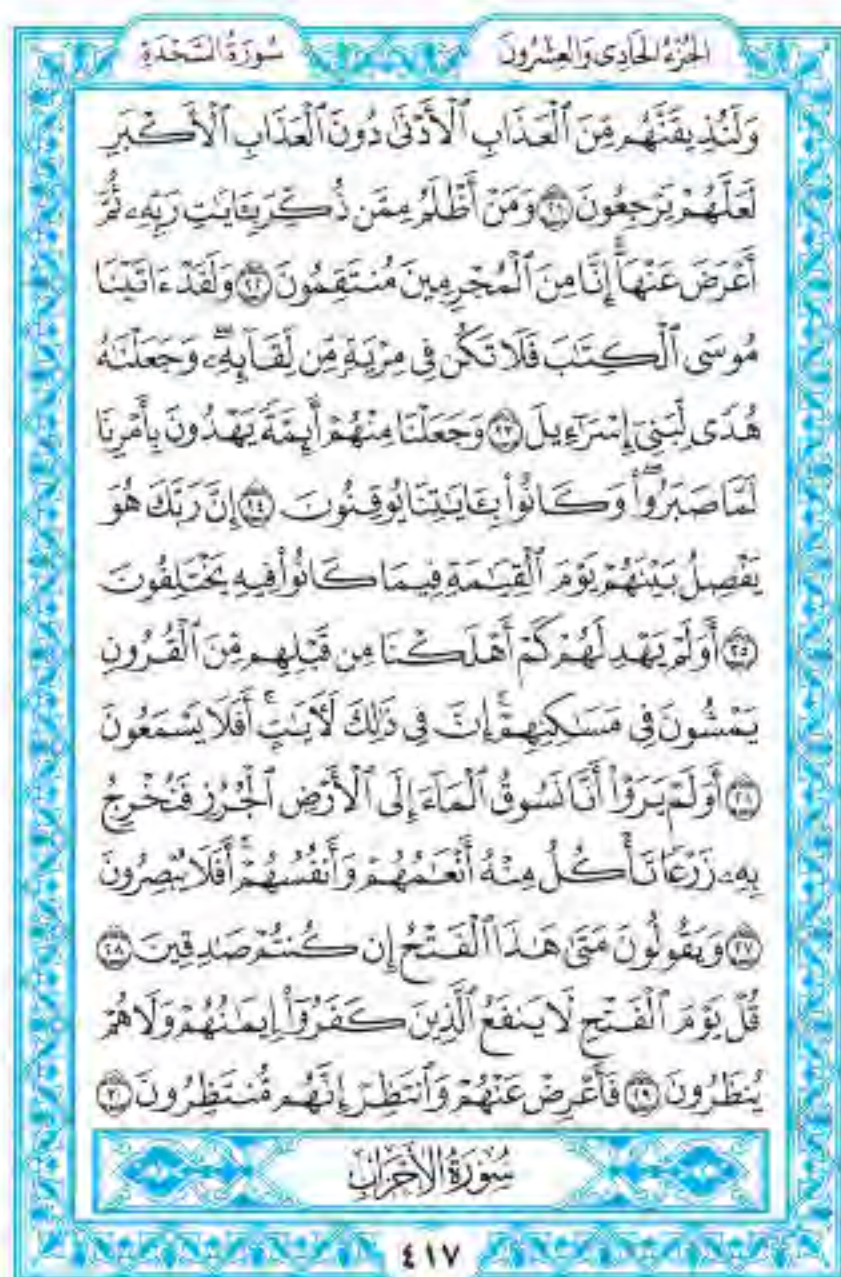 الجُزْءُ الحَادِي وَالعِشْرُونَ
سُورَةُ السَّجْدَةِ
وَلَنُذِيقَنَّهُم مِّنَ ٱلْعَذَابِ ٱلْأَدْنَىٰ دُونَ ٱلْعَذَابِ ٱلْأَكْبَرِ
لَعَلَّهُمْ يَرْجِعُونَ ۝٢١ وَمَنْ أَظْلَمُ مِمَّن ذُكِّرَ بِـَٔايَٰتِ رَبِّهِۦ ثُمَّ
أَعْرَضَ عَنْهَآ ۚ إِنَّا مِنَ ٱلْمُجْرِمِينَ مُنتَقِمُونَ ۝٢٢ وَلَقَدْ ءَاتَيْنَا
مُوسَى ٱلْكِتَٰبَ فَلَا تَكُن فِى مِرْيَةٍ مِّن لِّقَآئِهِۦ ۖ وَجَعَلْنَٰهُ
هُدًى لِّبَنِىٓ إِسْرَٰٓءِيلَ ۝٢٣ وَجَعَلْنَا مِنْهُمْ أَئِمَّةً يَهْدُونَ بِأَمْرِنَا
لَمَّا صَبَرُوا۟ ۖ وَكَانُوا۟ بِـَٔايَٰتِنَا يُوقِنُونَ ۝٢٤ إِنَّ رَبَّكَ هُوَ
يَفْصِلُ بَيْنَهُمْ يَوْمَ ٱلْقِيَٰمَةِ فِيمَا كَانُوا۟ فِيهِ يَخْتَلِفُونَ
۝٢٥ أَوَلَمْ يَهْدِ لَهُمْ كَمْ أَهْلَكْنَا مِن قَبْلِهِم مِّنَ ٱلْقُرُونِ
يَمْشُونَ فِى مَسَٰكِنِهِمْ ۚ إِنَّ فِى ذَٰلِكَ لَـَٔايَٰتٍ ۖ أَفَلَا يَسْمَعُونَ
۝٢٦ أَوَلَمْ يَرَوْا۟ أَنَّا نَسُوقُ ٱلْمَآءَ إِلَى ٱلْأَرْضِ ٱلْجُرُزِ فَنُخْرِجُ
بِهِۦ زَرْعًا تَأْكُلُ مِنْهُ أَنْعَٰمُهُمْ وَأَنفُسُهُمْ ۖ أَفَلَا يُبْصِرُونَ
۝٢٧ وَيَقُولُونَ مَتَىٰ هَٰذَا ٱلْفَتْحُ إِن كُنتُمْ صَٰدِقِينَ ۝٢٨
قُلْ يَوْمَ ٱلْفَتْحِ لَا يَنفَعُ ٱلَّذِينَ كَفَرُوٓا۟ إِيمَٰنُهُمْ وَلَا هُمْ
يُنظَرُونَ ۝٢٩ فَأَعْرِضْ عَنْهُمْ وَٱنتَظِرْ إِنَّهُم مُّنتَظِرُونَ ۝٣٠
سُورَةُ الأَحْزَابِ
٤١٧